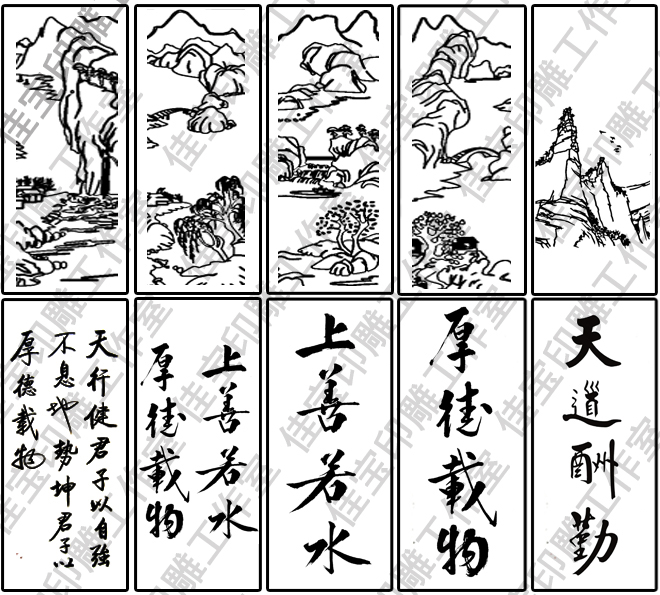 天行健君子以自強
不息地勢坤君子以
厚德載物
上善若水
厚德載物
上善若水
厚德載物
天道酬勤
佳宝印雕工作室